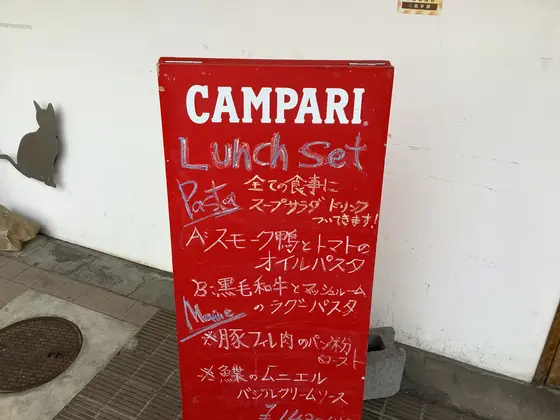 CAMPARI
Lunch Set
Pasta
全ての食事に
スープサラダ ドリンク
ついてきます!
A:スモーク鴨とトマトの
オイルパスタ
B:黒毛和牛とマッシュルーム
のラグーパスタ
Maine
※豚フィレ肉のパン粉
ロースト
※鰈のムニエル
バジルクリームソース